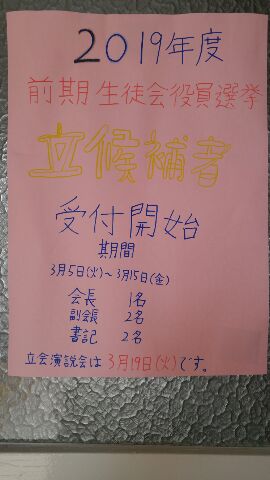 2019年度
前期生徒会役員選挙
立候補者
受付開始
期間
3月5日(火)~3月15日(金)
会長 1名
副会長 2名
書記 2名
立会演説会は3月19日(火)です。